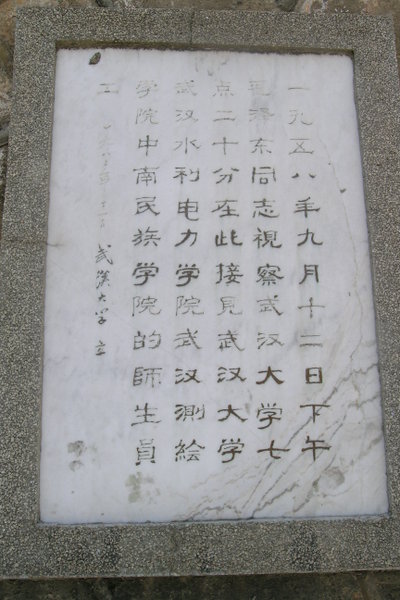 一九五八年九月十二日下午
毛泽东同志視察武汉大学七
点二十分在此接見武汉大学
武汉水利电力学院武汉測絵
学院中南民族学院的師生員
工 武漢大学 立